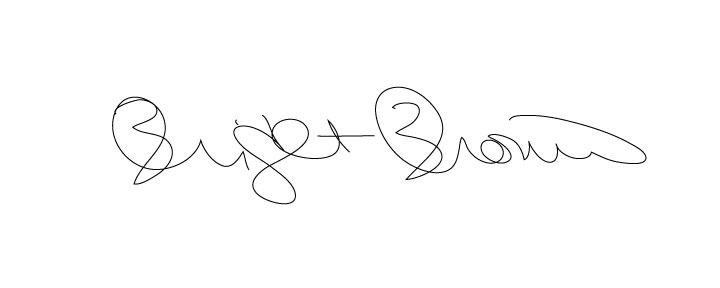 Bright Brown